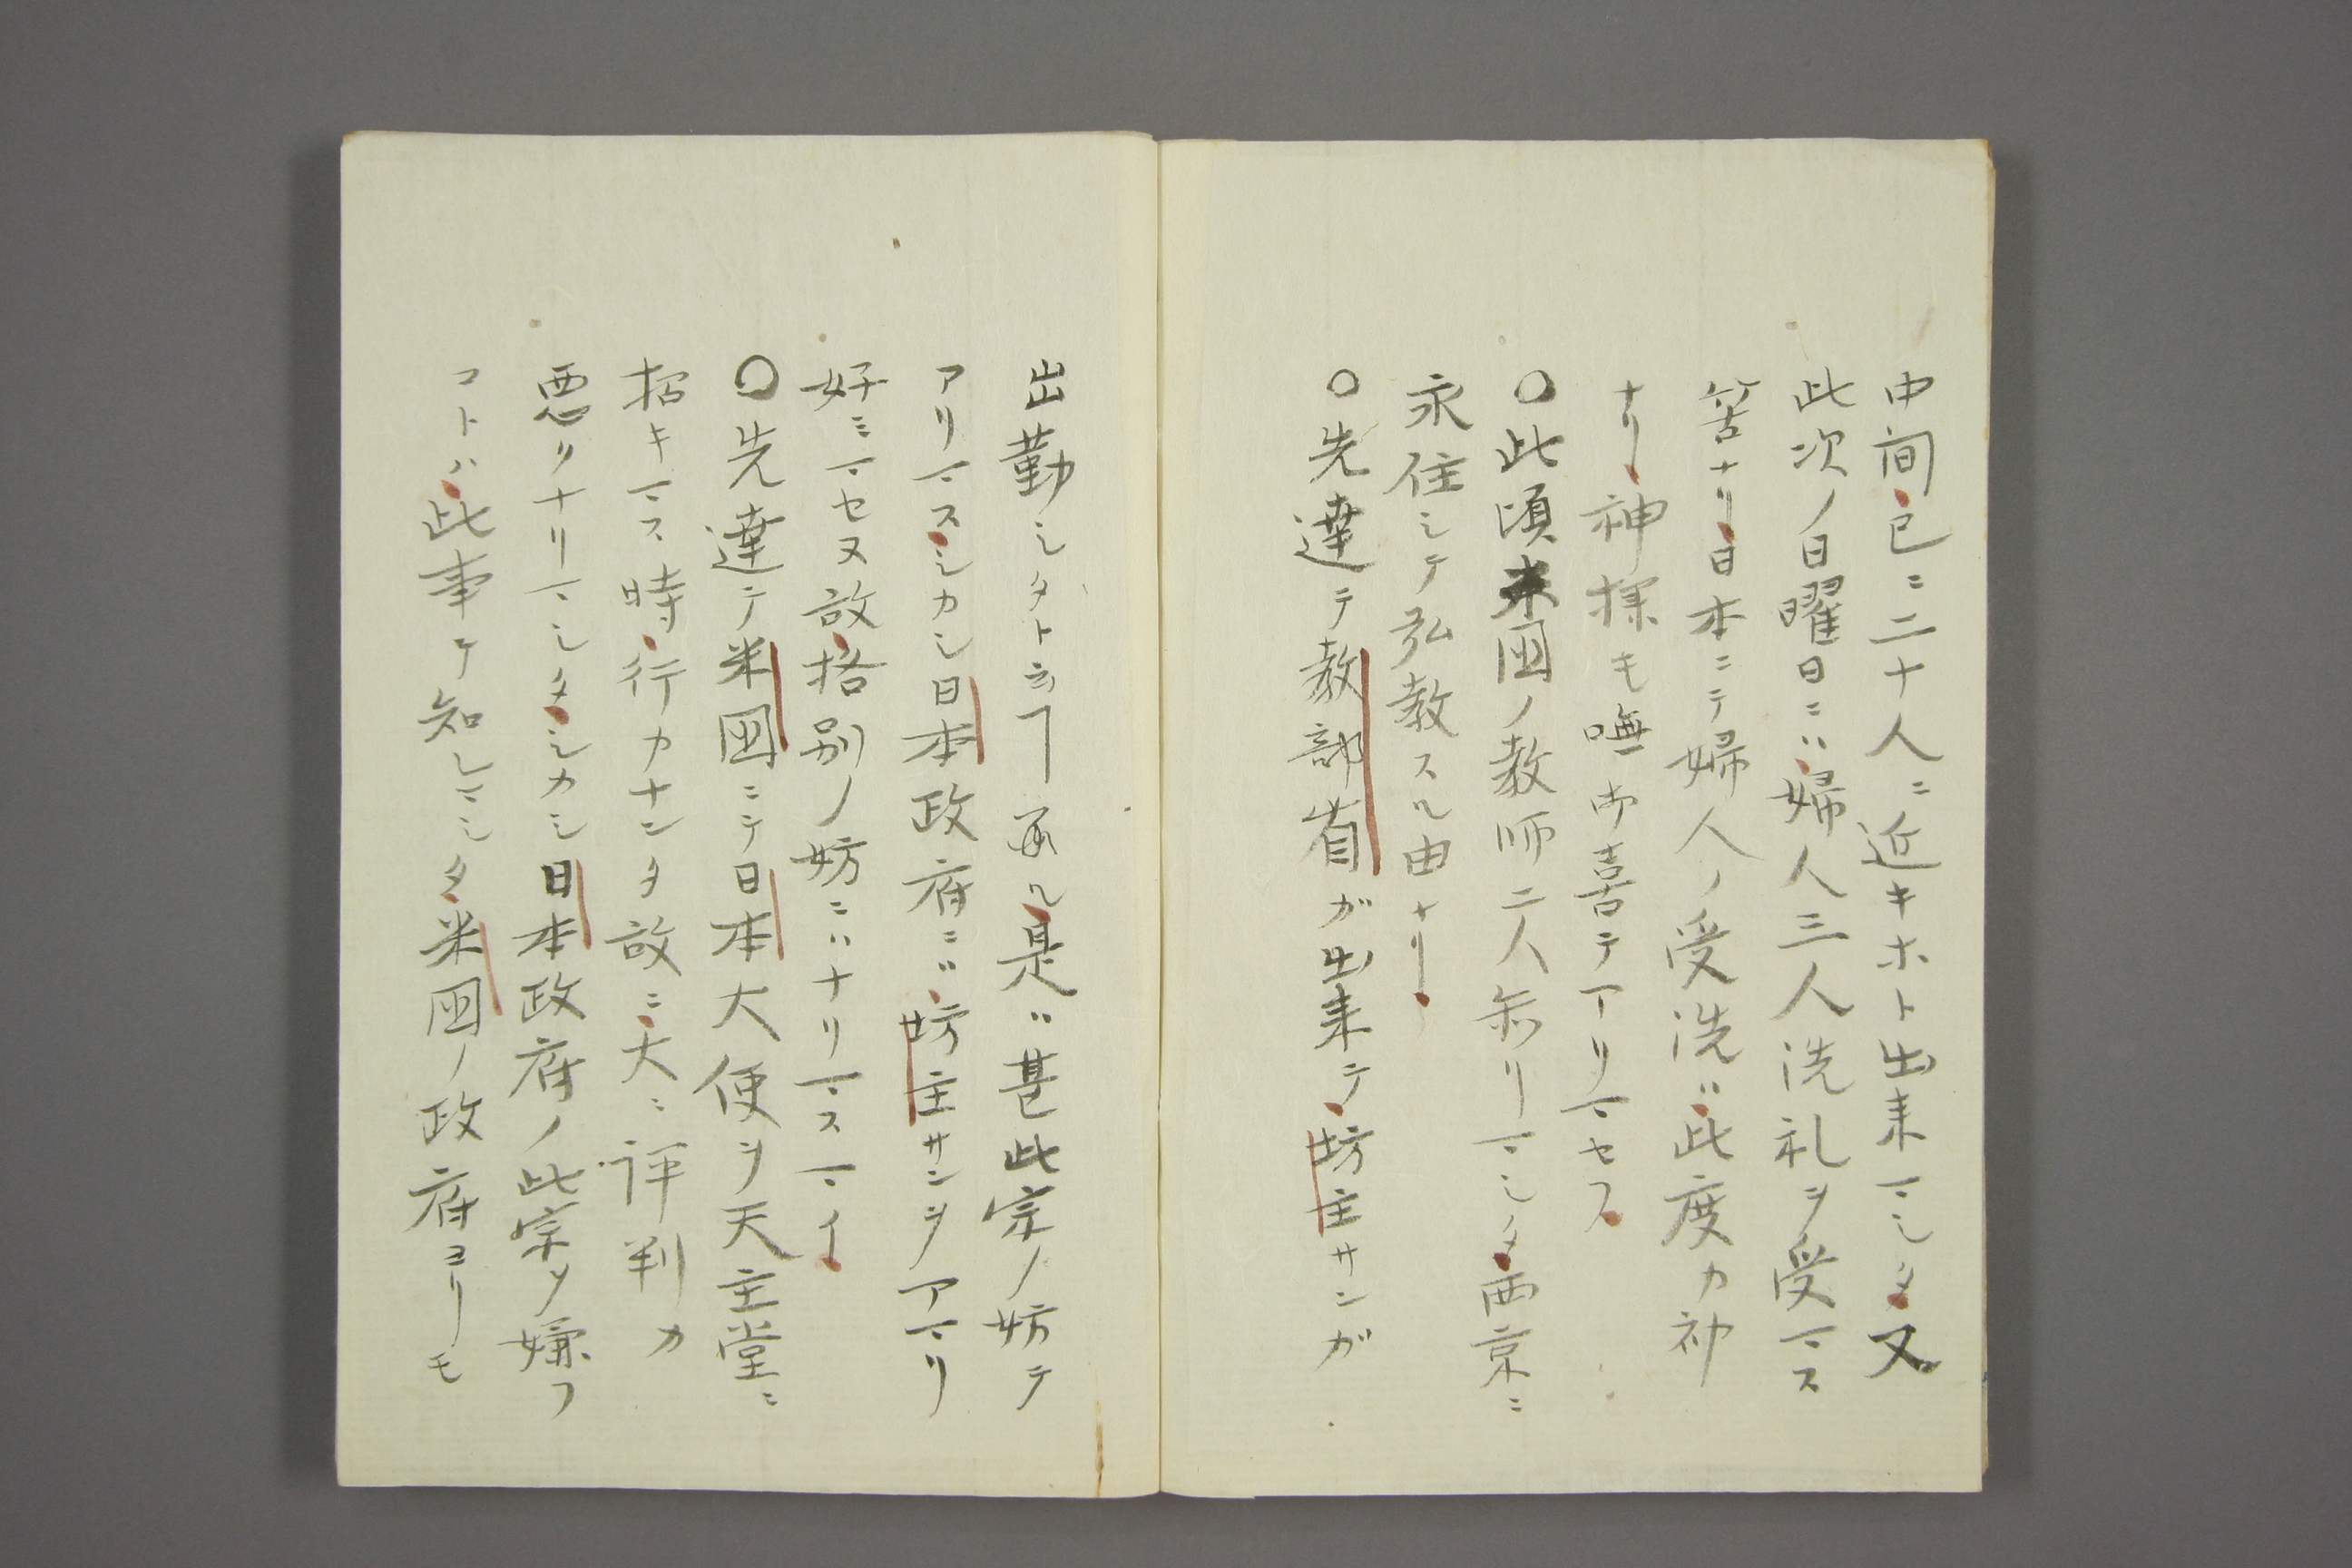 中間已ニ二十人ニ近キホト出来マシタ又
此次ノ日曜日ニハ婦人三人洗礼ヲ受マス
筈ナリ日本ニテ婦人ノ受洗ハ此度カ初
ナリ神様モ嘸御喜テアリマセフ
〇此頃米国ノ教師二人参リマシタ西京ニ
永住シテ弘教スル由ナリ
〇先達テ教部省ガ出来テ坊主サンガ
出勤シタト云フヿ承ル是ハ甚此宗ノ妨テ
アリマスシカシ日本政府ニハ坊主サンヲアマリ
好ミマセヌ故格別ノ妨ニハナリマスマイ
〇先達テ米国ニテ日本大使ヲ天主堂ニ
招キマス時行カナンタ故ニ大ニ評判カ
悪クナリマシタシカシ日本政府ノ此宗ヲ嫌フ
コトハ此事テ知レマシタ米国ノ政府ヨリモ